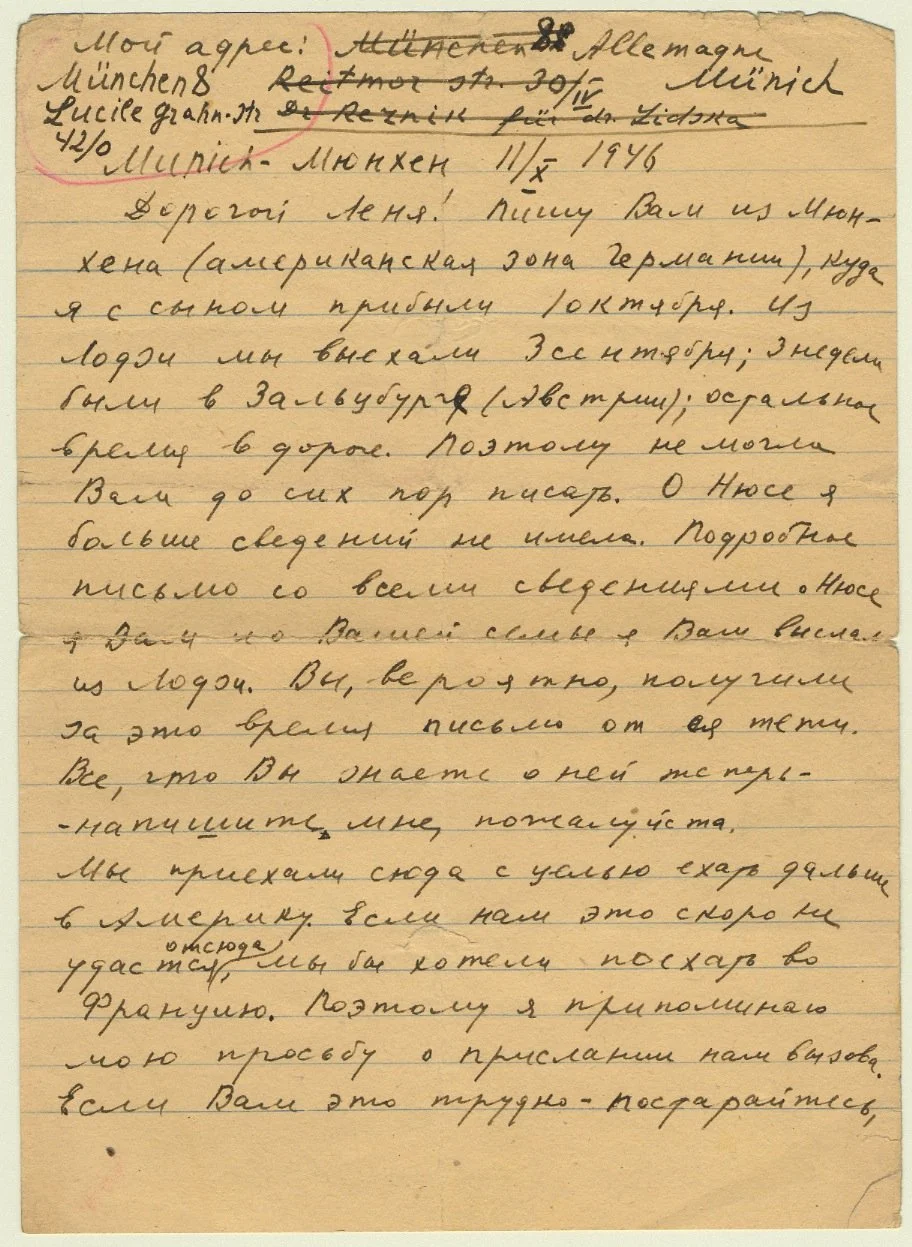 Мой адрес: München 8 Allemagne
München 8 Reitmor str. 30/IV Münich
Lucile Grahn-str Dr Reznik für dr. Lidska
42/0
Munich - Мюнхен 11/X 1946
Дорогой Леня! Пишу Вам из Мюн-
хена (американская зона Германии), куда
я с сыном прибыли 1 октября. Из
Лодзи мы выехали 3 сентября; 3 недели
были в Зальцбурге (Австрии); остальное
время в дороге. Поэтому не могла
Вам до сих пор писать. О Нюсе я
больше сведений не имела. Подробное
письмо со всеми сведениями о Нюсе
и Вашей семье я Вам выслала
из Лодзи. Вы, вероятно, получили
за это время письмо от ея тети.
Все, что Вы знаете о ней теперь-
-напишите мне, пожалуйста.
Мы приехали сюда с целью ехать дальше
в Америку. Если нам это скоро не
отсюда
удастся, мы бы хотели поехать во
Францию. Поэтому я припоминаю
мою просьбу о прислании нам вызова.
Если Вам это трудно - постарайтесь,